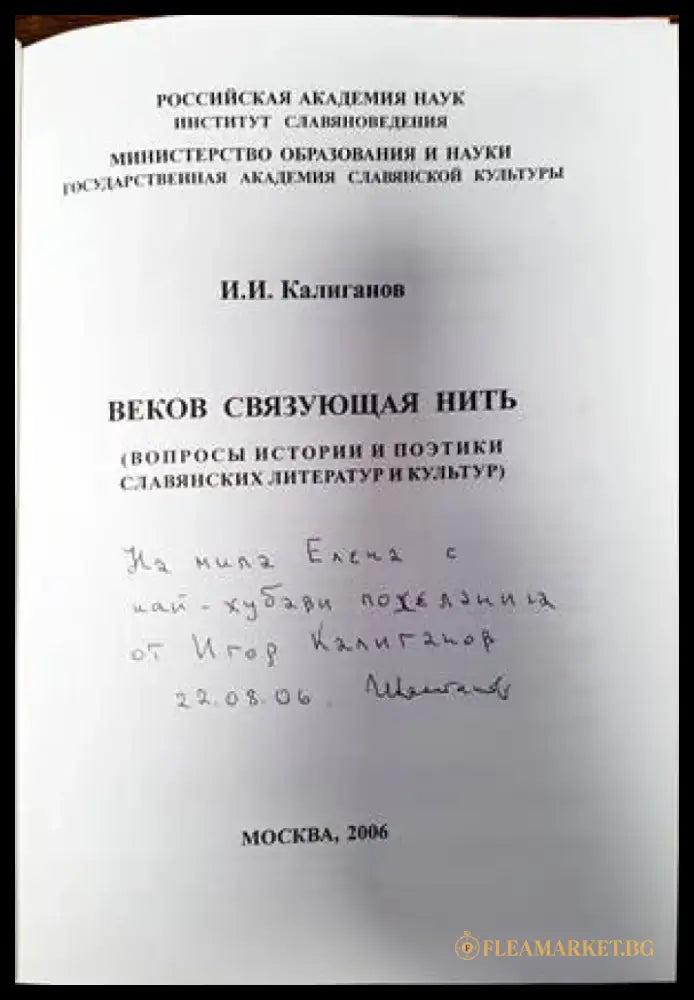 РОССИЙСКАЯ АКАДЕМИЯ НАУК
ИНСТИТУТ СЛАВЯНОВЕДЕНИЯ
МИНИСТЕРСТВО ОБРАЗОВАНИЯ И НАУКИ
ГОСУДАРСТВЕННАЯ АКАДЕМИЯ СЛАВЯНСКОЙ КУЛЬТУРЫ
И.И. Калиганов
ВЕКОВ СВЯЗУЮЩАЯ НИТЬ
(ВОПРОСЫ ИСТОРИИ И ПОЭТИКИ
СЛАВЯНСКИХ ЛИТЕРАТУР И КУЛЬТУР)
На мила Елена с
най-хубави пожелания
от Игор Калиганов
22.08.06.
МОСКВА, 2006
FLEAMARKET.BG